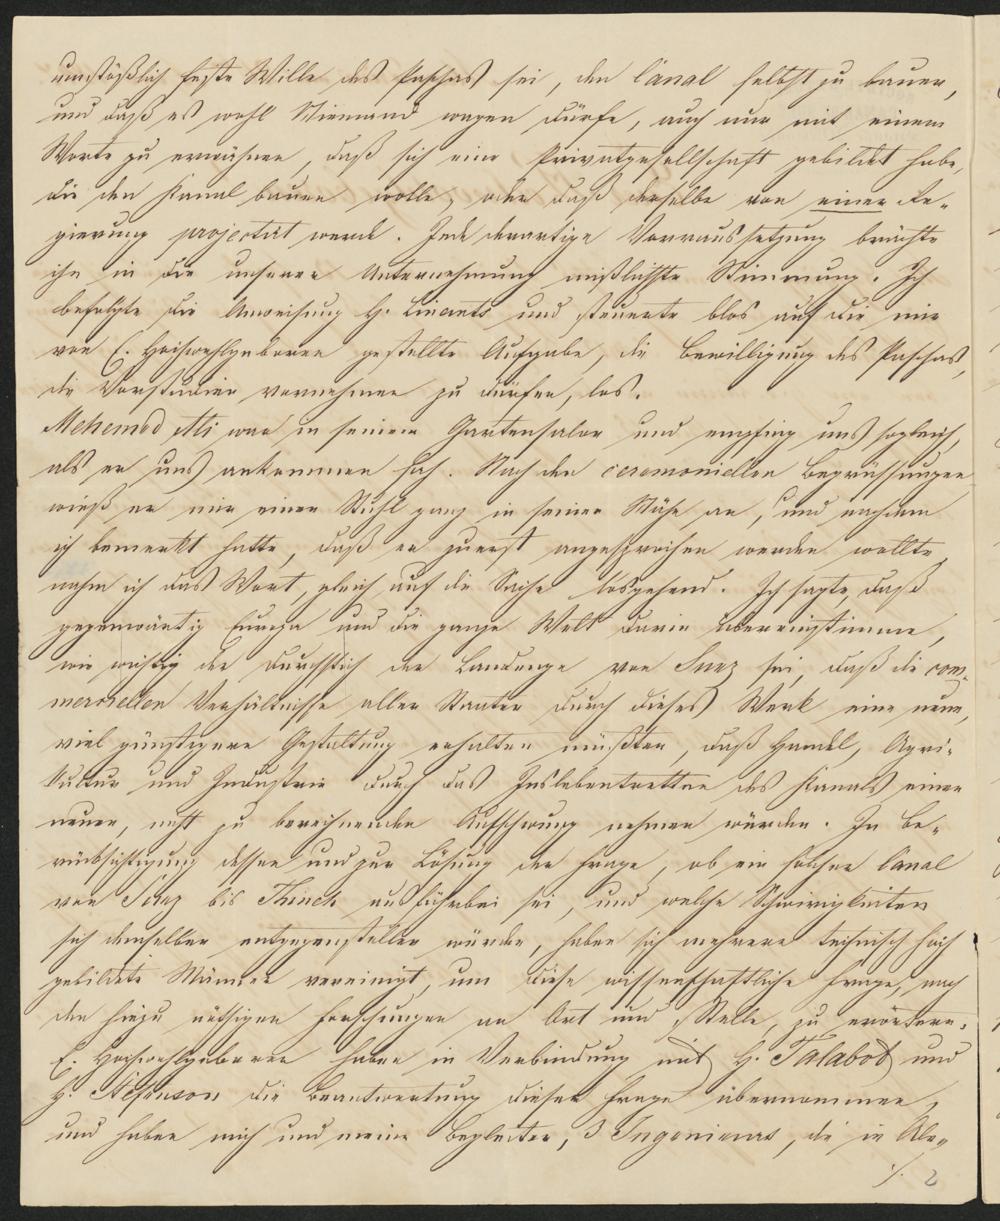 umstößlich feste Wille des Paschas sei, den Canal selbst zu bauen,
und daß es wohl Niemand wagen dürfe, auch nur mit einem
Worte zu erwähnen, daß sich eine Privatgesellschaft gebildet habe,
die den Kanal bauen wolle, oder daß derselbe von einer Re-
gierung projectirt werde. Jede derartige Vorraussetzung brächte
ihn in die unserer Unternehmung mißlichste Stimmung. Ich
befolgte die Anweisung H. Linants und steuerte blos auf die mir
von E. Hochwohlgeboren gestellte Aufgabe, die Bewilligung des Paschas,
die Vorstudien vornehmen zu dürfen, los.
Mehemed Ali war in seinem Gartensalon und empfing uns sogleich,
als er uns ankommen sah. Nach den ceremoniellen Begrüssungen
wieß er mir einen Stuhl ganz in seiner Nähe an, und nachdem
ich bemerkt hatte, daß er zuerst angesprochen werden wollte,
nahm ich das Wort, gleich auf die Sache losgehend. Ich sagte, daß
gegenwärtig Europa und die ganze Welt darin übereinstimme,
wie wichtig der Durchstich der Landenge von Suez sei, daß die com-
merciellen Verhältnisse aller Staaten durch dieses Werk eine neue,
viel günstigere Gestaltung erhalten müßten, daß Handel, Agri-
kultur und Industrie durch das Inslebentretten des Kanals einen
neuen, nicht zu berechnenden Aufschwung nehmen würden. In Be-
rücksichtigung dessen und zur Lösung der Frage, ob ein solcher Canal
von Suez bis Thineh ausführbar sei, und welche Schwierigkeiten
sich demselben entgegenstellen würden, haben sich mehrere technisch hoch
gebildete Männer vereinigt, um diese wissenschaftliche Frage, nach
den hiezu nöthigen Forschungen an Ort und Stelle, zu erörtern.
E. Hochwohlgeboren haben in Verbindung mit H. Talabot und
H. Stefenson die Beantwortung dieser Frage übernommen,
und haben mich und meine Begleiter, 3 Ingenieurs, die in Ale-
./. 2